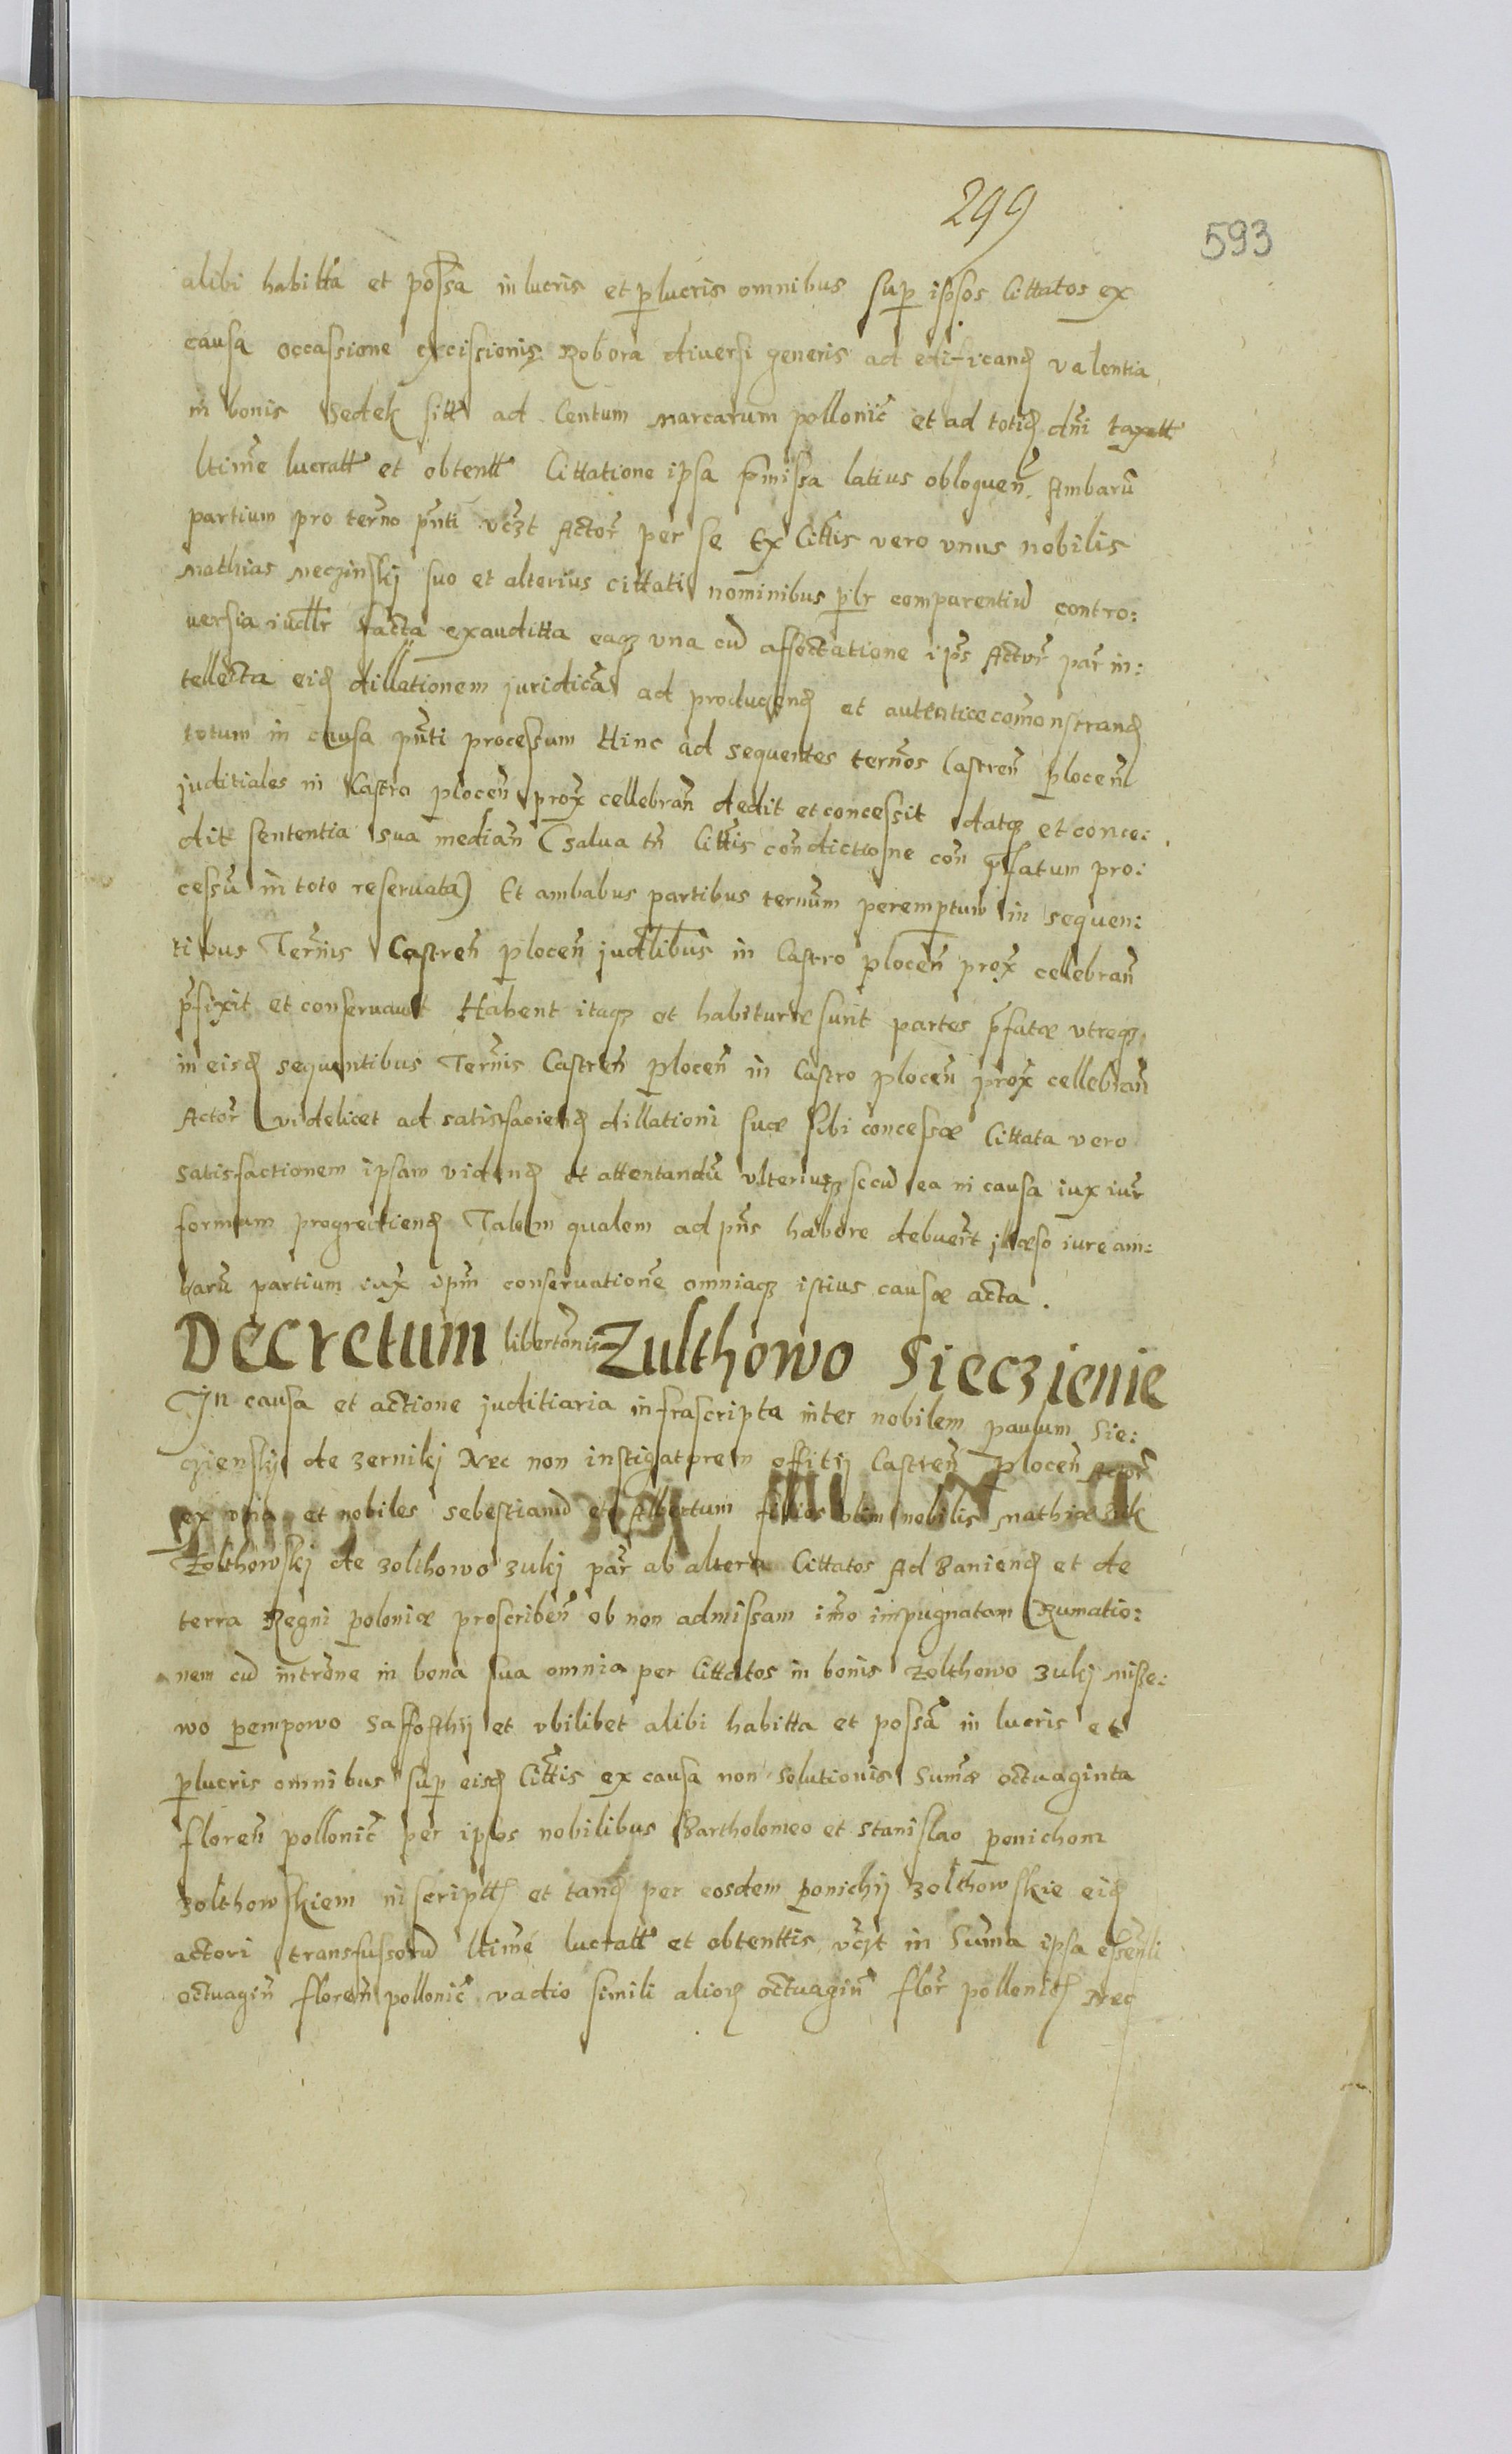 299
593
alibi habitta et possa in lucris et perlucris omnibus sup ipsos Cittatos ex
causa occassione excissionis Robora diversi generis ad edificand valentia
in bonis Sedek sitt ad Centum marcarum pollonic et ad totid dni taxatt
ltime lucratt et obtentt Cittatione ipsa pmissa latius obloquen. Ambaru
partium pro terno pnti vczt Actor per se Ex Cittis vero unus nobilis
Mathias Meczinskij suo et alterius cittati nominibus plr comparentiu contro:
versia iudllr facta exauditta eaqz una cu affectatione ips Actor par in:
tellecta eid dillationem juridica ad producend et autenticecomonstrand
totum in causa pnti processum Hinc ad sequentes ternos Castren plocen
juditiales in Castro plocen prox cellebran dedit et concessit datqz et conce:
dit sententia sua median (salva tn Cittis condictione con pfatum pro:
cessu in toto reservata) Et ambabus partibus ternum peremptum in sequen:
tibus Ternis Castren plocen judlibus in Castro plocen prox celebran
pfixit et conservavit Habent itaqz et habiturae sunt partes pfatae utreqz
in eisd sequentibus Ternis Castren plocen in Castro plocen prox cellebran
Actor videlicet ad satisfaciend dillationi suae sibi concessae Cittata vero
satisfactionem ipsam vidend et attentandu ulteriusqz secu ea in causa iux iur
formum progrediend Talem qualem ad pns habere debuert illaeso iure am:
baru partium iux ipm conservatione omniaqz istius causae acta.
Decretum libertonis Zulthowo Sieczienie
In causa et actione juditiaria infrascripta inter nobilem paulum Sie:
czienskij de zernikj Nec non instigatorem offitij Castren Plocen Actor
ex una et nobiles sebestianu et Albertum filios olim nobilis Mathiae Zik
Zolthowskj de zolthowo zukj par ab altera Cittatos Ad Baniend et de
terra Regni poloniae proscriben ob non admissam imo impugnatam Rumatio:
nem cu introne in bona sua omnia per Cittatos in bonis zolthowo zukj misse:
wo pempowo Saffathij et ubilibet alibi habitta et possa in lucris et
perlucris omnibus sup eisd Cittis ex causa non solutionis Sumae octuaginta
floren pollonic per ipsos nobilibus Bartholomeo et Stanislao penichom
zolthowskiem inscriptt et tand per eosdem penichij zolthowskie eid
actori transfussoru ltime lucratt et obtenttis vczt in Suma ipsa essenli
octuagin floren pollonic vadio simili aliord octuagin flor pollonic Nec